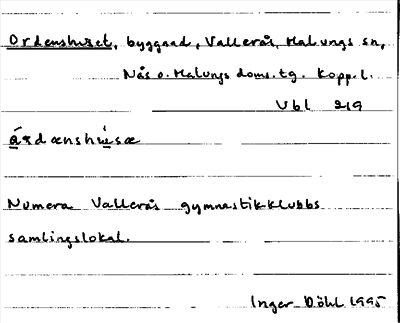 Ordenshuset, byggnad, Vallerås, Malungs sn,
Nås o. Malungs doms. tg. Kopp. l.
Vbl 219
Numera Vallerås gymnastikklubbs
samlingslokal.
Inger Döhl 1995